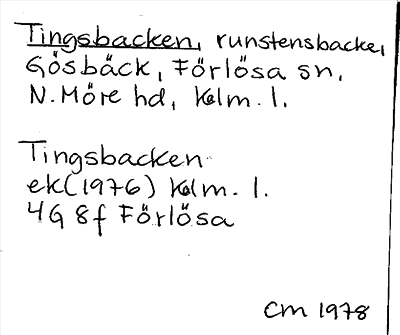 Tingsbacken, runstensbacke,
Gösbäck, Förlösa sn,
N. Möre hd, Kalm. l.
Tingsbacken
ek (1976) Kalm. l.
4G 8f Förlösa
CM 1978